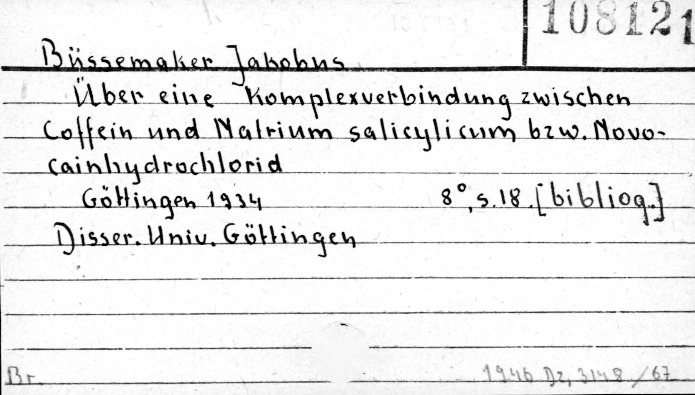 108121
Büssemaker Jakobus
Über eine Komplexverbindung zwischen
Coffein und Natrium salicylicum bzw. Novo-
cainhydrochlorid
Göttingen 1934 8°, s. 18. [bibliog.]
Disser. Univ. Göttingen
Br. 1946 Dz, 3148/67